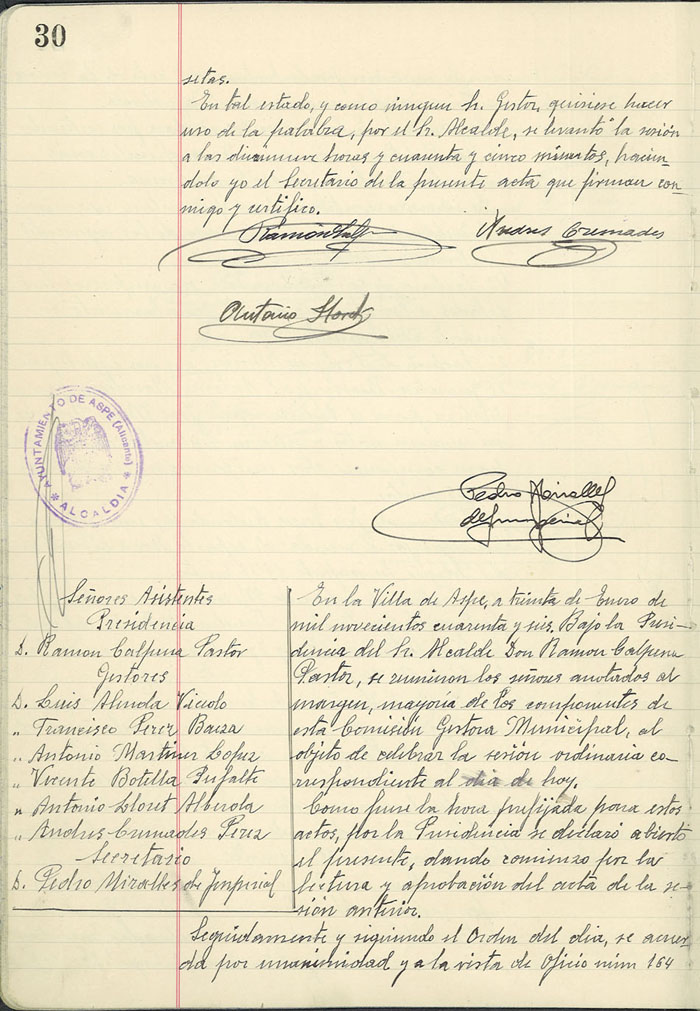 30
setas.
En tal estado, y como ningun Sr. Gestor, quisiese hacer
uso de la palabra, por el Sr. Alcalde, se levantó la sesión
a las diecinueve horas y cuarenta y cinco minutos, hacien-
dolo yo el Secretario de la presente acta que firman con-
migo y certifico.
Ramón
Andres Cremades
Antonio Lloret
AYUNTAMIENTO DE ASPE (Alicante)
* ALCALDIA *
Pedro Miralles
de Imperial
Señores Asistentes
Presidencia
D. Ramon Calpena Pastor
Gestores
D. Luis Almela Viciolo
" Francisco Perez Baeza
" Antonio Martinez Lopez
" Vicente Botella Pujalte
" Antonio Lloret Alberola
" Andres Cremades Perez
Secretario
D. Pedro Miralles de Imperial
En la Villa de Aspe, a treinta de Enero de
mil novecientos cuarenta y seis. Bajo la Presi-
dencia del Sr. Alcalde Don Ramon Calpena
Pastor, se reunieron los señores anotados al
margen, mayoría de los componentes de
esta Comisión Gestora Municipal, al
objeto de celebrar la sesión ordinaria co-
rrespondiente al dia de hoy.
Como fuese la hora prefijada para estos
actos, por la Presidencia se declaró abierto
el presente, dando comienzo por la
lectura y aprobación del acta de la se-
sión anterior.
Seguidamente y siguiendo el Orden del dia, se acuer
da por unanimidad y a la vista de Oficio núm 164